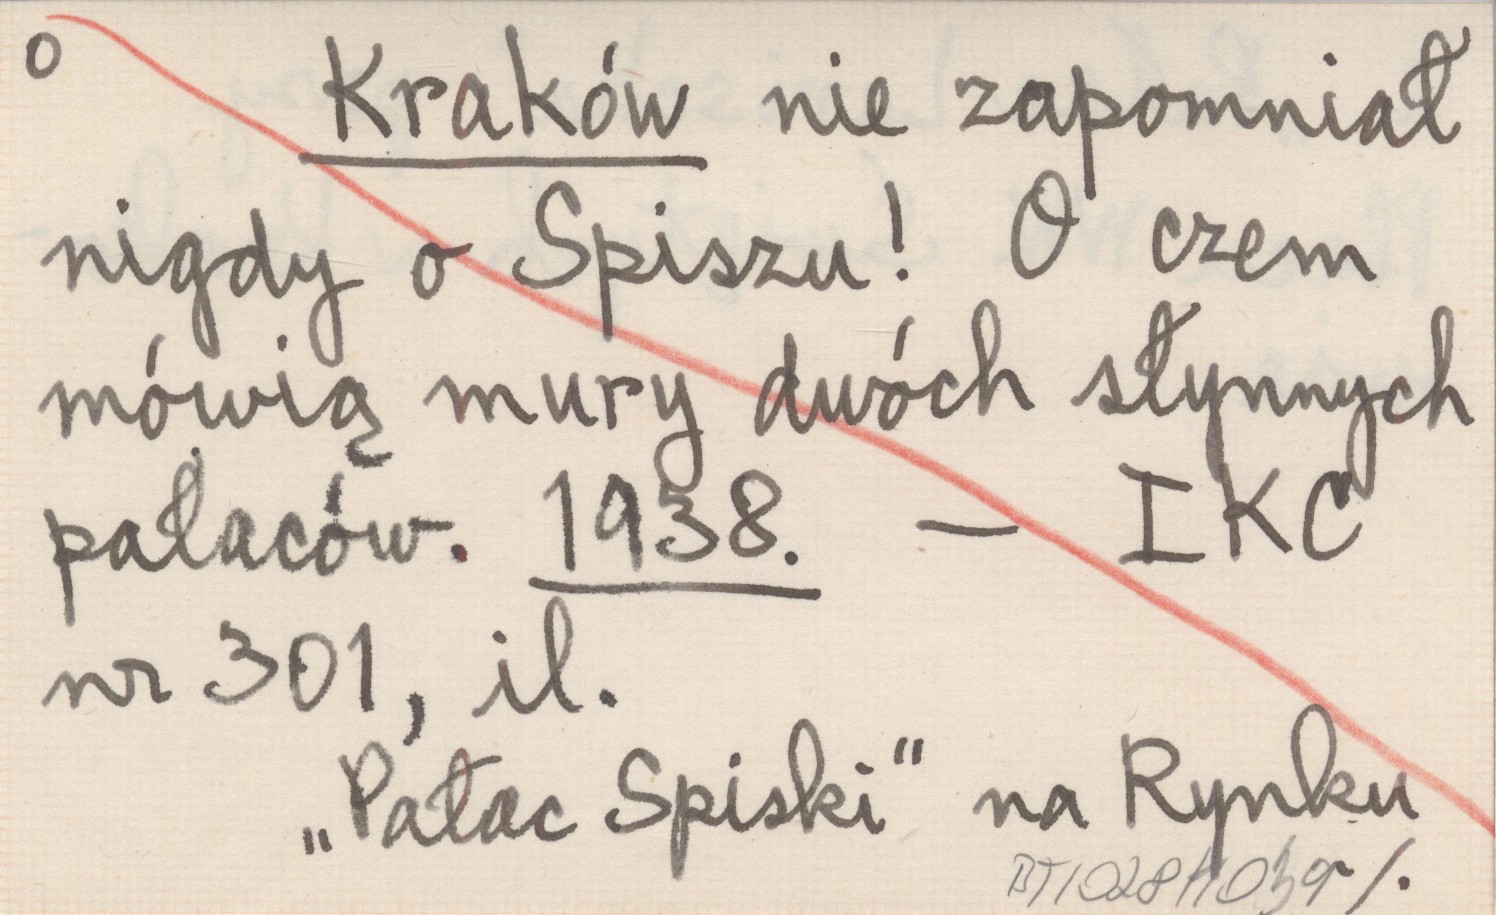 o
Kraków nie zapomniał
nigdy o Spiszu! O czem
mówią mury dwóch słynnych
pałaców. 1938. — IKC
nr 301, il.
„Pałac Spiski" na Rynku
./.